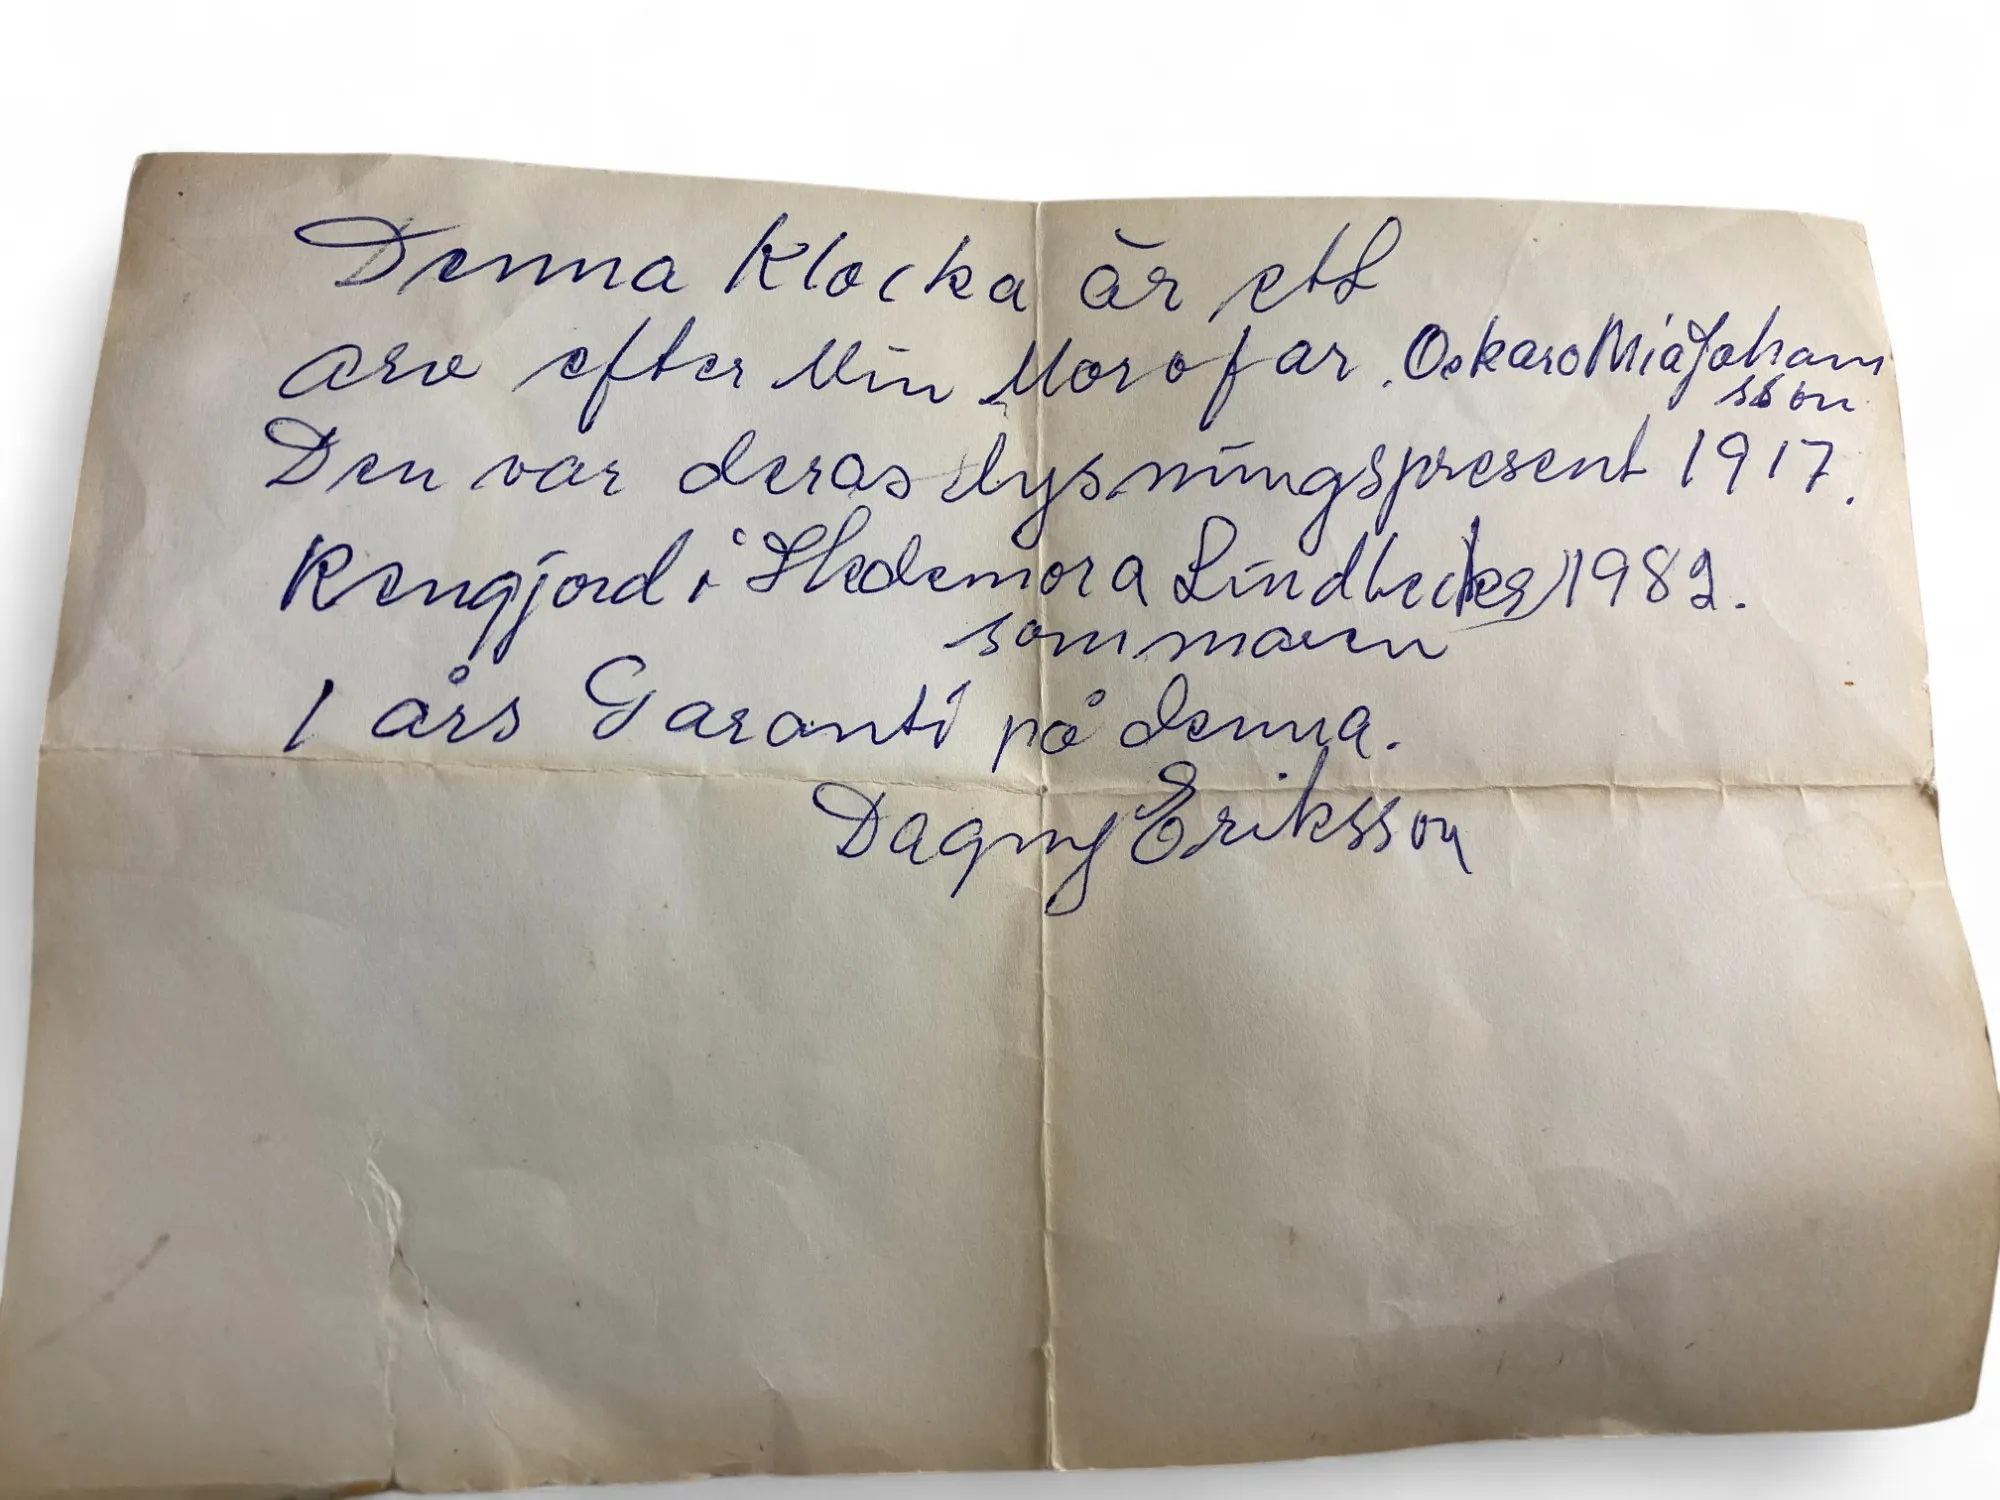 Denna Klocka är ett
arv efter Min Mor o far. Oskar o Mia Johans
sson
Den var deras lysningspresent 1917.
Rengjord i Hedemora Lindbecks 1982.
sommaren
1 års Garanti på denna.
Dagny Eriksson